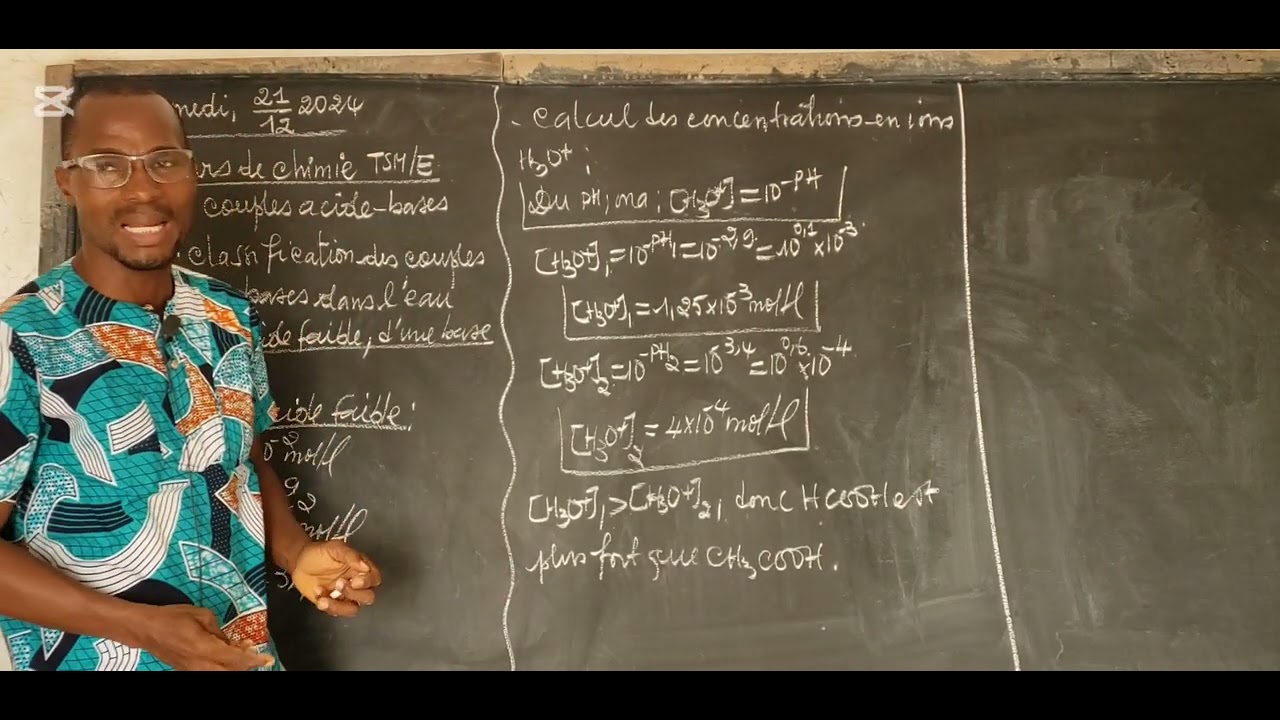 medi, 21/12 2024
rs de chimie TSM/E
couples acide-bases
classification des couples
bases dans l'eau
ide faible, d'une base
cide faible:
0⁻² mol/l
9
-2
mol/l
- Calcul des concentrations en ions
H₃O⁺ :
Du PH, ona : [H₃O⁺] = 10⁻ᴾᴴ
[H₃O⁺]₁ = 10⁻ᴾᴴ₁ = 10⁻²,⁹ = 10⁰,¹ × 10⁻³
[H₃O⁺]₁ = 1,25×10⁻³ mol/l
[H₃O⁺]₂ = 10⁻ᴾᴴ₂ = 10⁻³,⁴ = 10⁰,⁶ × 10⁻⁴
[H₃O⁺]₂ = 4×10⁻⁴ mol/l
[H₃O⁺]₁ > [H₃O⁺]₂, donc HCOOH est
plus fort que CH₃COOH.